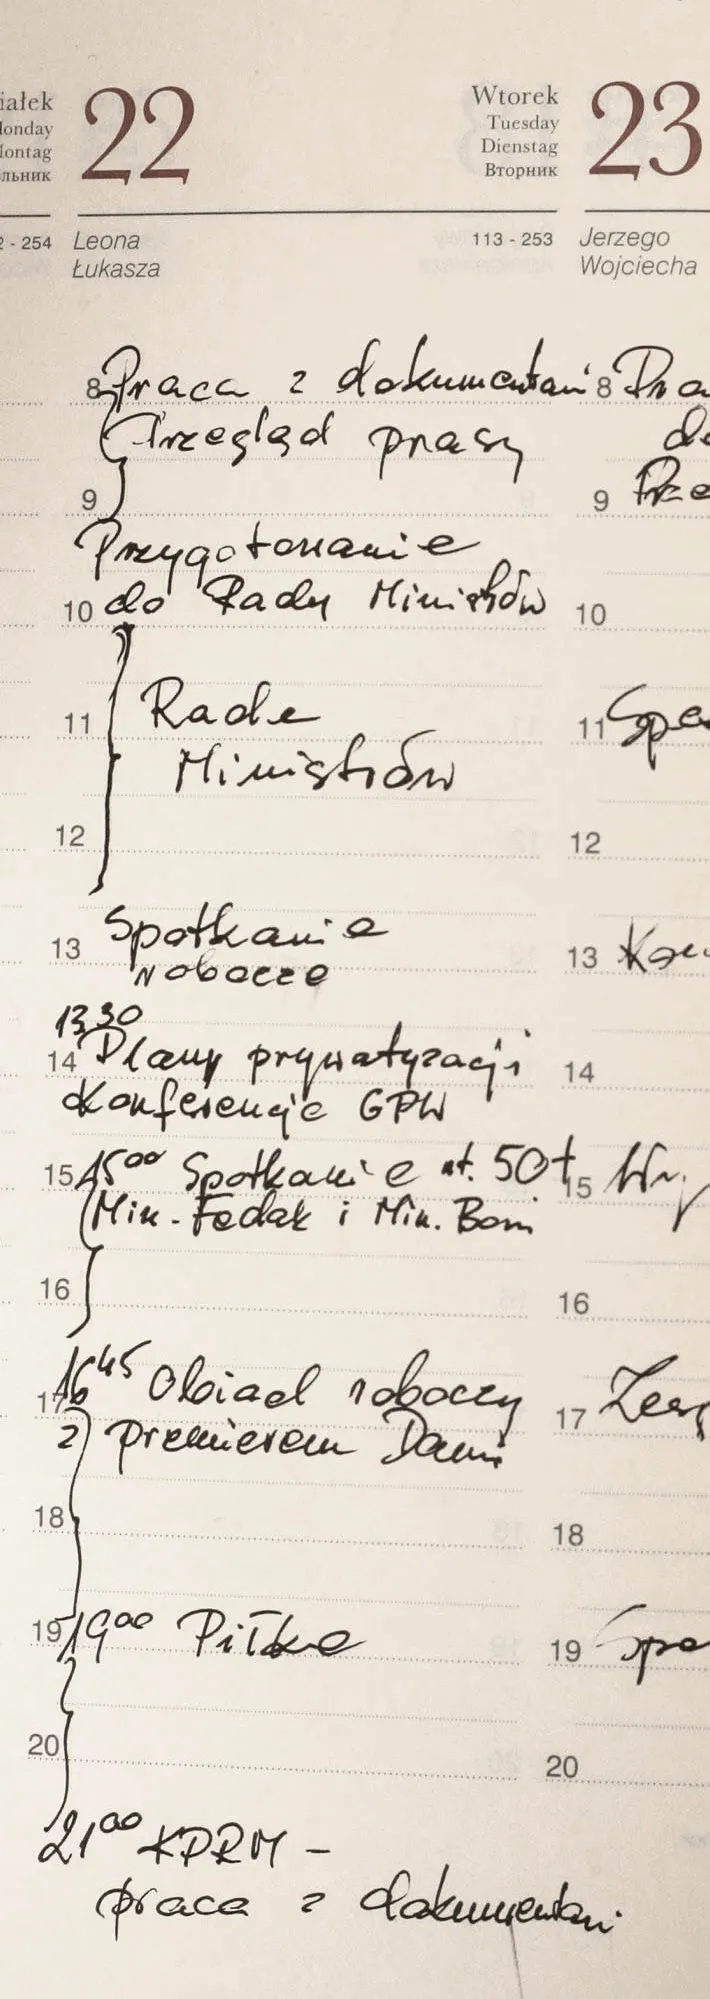 iałek
Monday
Montag
льник
22
2 - 254
Leona
Łukasza
8 Praca z dokumentami
Przegląd prasy
9
Przygotowanie
10 do Rady Ministrów
11 Rada
Ministrów
12
Spotkanie
13 robocze
13 30
14 Plany prywatyzacji
Konferencja GPW
15 15 00 Spotkanie nt. 50+
Min. Fedak i Min. Boni
16
17 16 45 Obiad roboczy
z premierem Danii
18
19 19 00 Piłka
20
21 00 KPRM -
praca z dokumentami
Wtorek
Tuesday
Dienstag
Вторник
23
113 - 253
Jerzego
Wojciecha
8 Pra
do
9 Prze
10
11 Spo
12
13 Kon
14
15
16
17
18
19 Spo
20